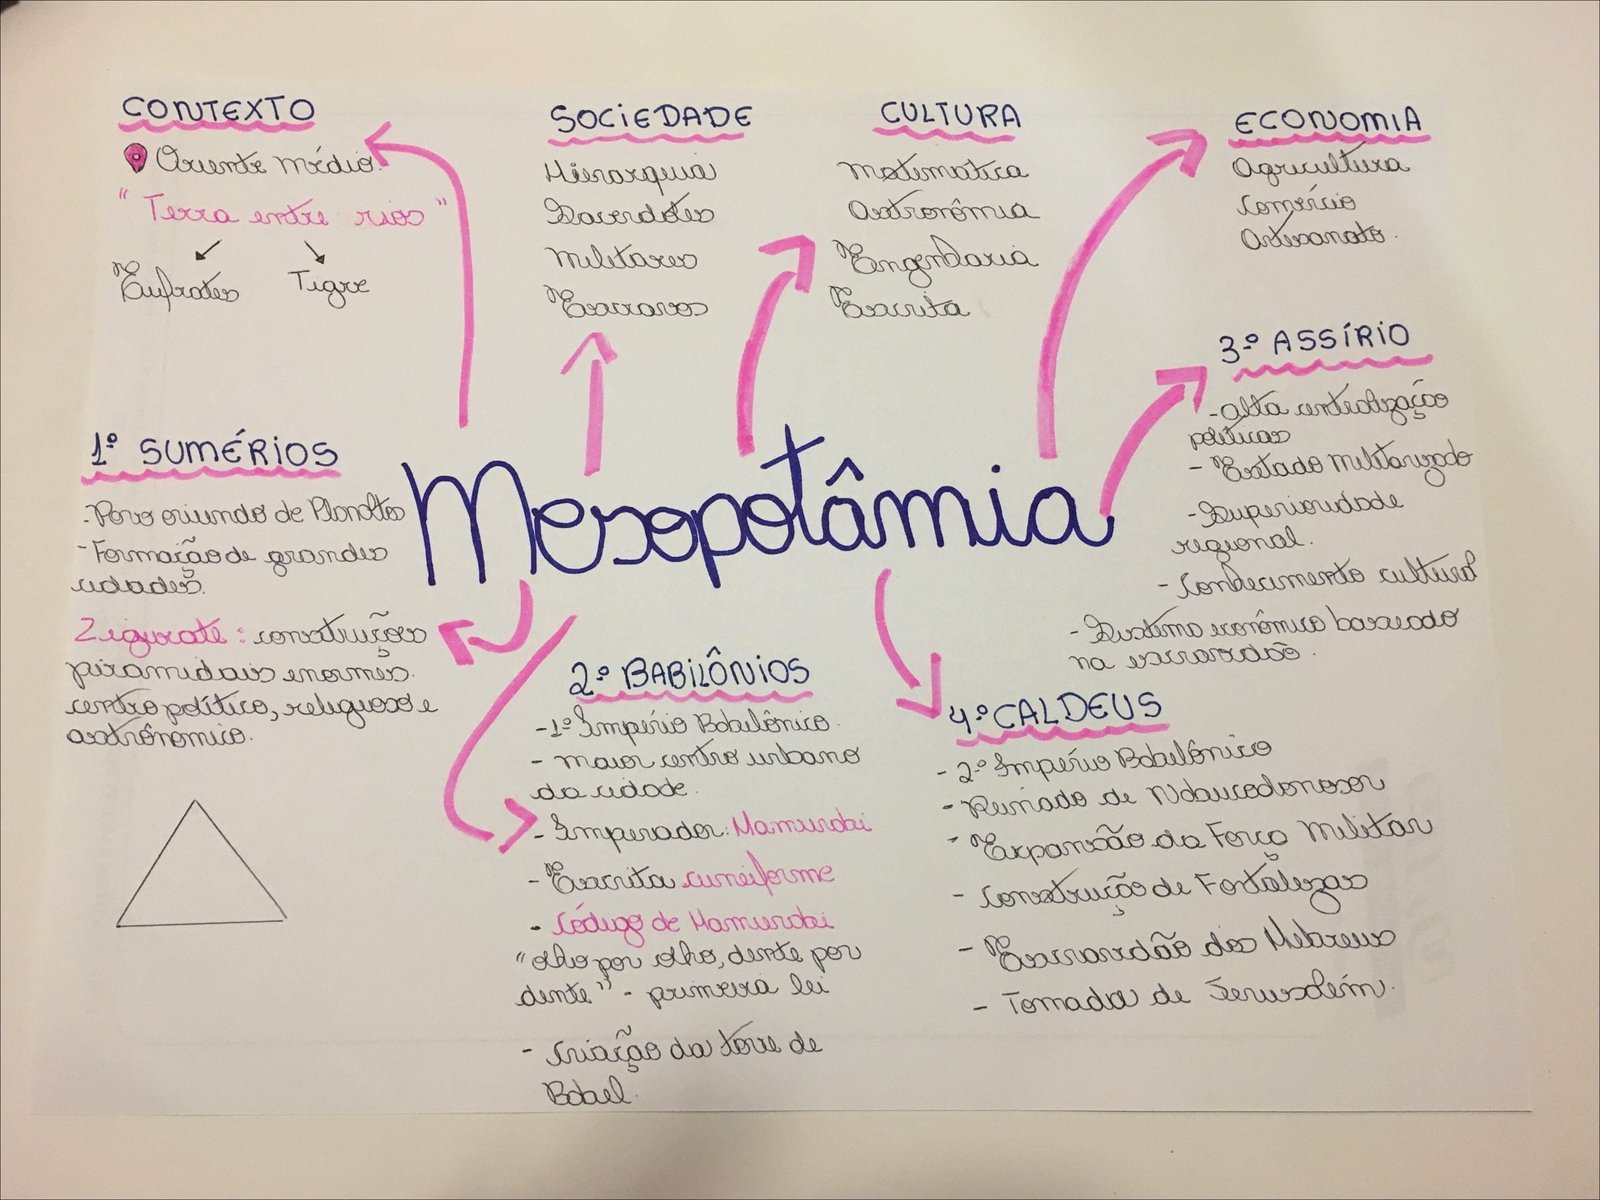 CONTEXTO
Oriente médio.
"Terra entre rios"
Eufrates Tigre
SOCIEDADE
Hierarquia
Sacerdotes
Militares
Escravos
CULTURA
Matemática
Astronômia
Engenharia
Escrita
ECONOMIA
Agricultura
Comércio
Artesanato.
1º SUMÉRIOS
- Povo oriundo de Planaltos
- Formação de grandes
cidades.
Zigurate: construções
piramidais enormes.
centro político, religioso e
astrônomico.
Mesopotâmia
2º BABILÔNIOS
- 1º Império Babilônico.
- maior centro urbano
da cidade.
- Imperador: Hamurabi
- Escrita cuneiforme
- Código de Hamurabi
"olho por olho, dente por
dente" - primeira lei
- Criação da torre de
Babel.
3º ASSÍRIO
- Alta centralização
políticas
- Estado Militarizado
- Superioridade
regional.
- Conhecimento cultural
- Sistema econômico baseado
na escravidão.
4º CALDEUS
- 2º Império Babilônico
- Reinado de Nabucodonosor
- Expansão da Força Militar
- Construção de Fortalezas
- Escravidão dos Hebreus
- Tomada de Jerusalém.